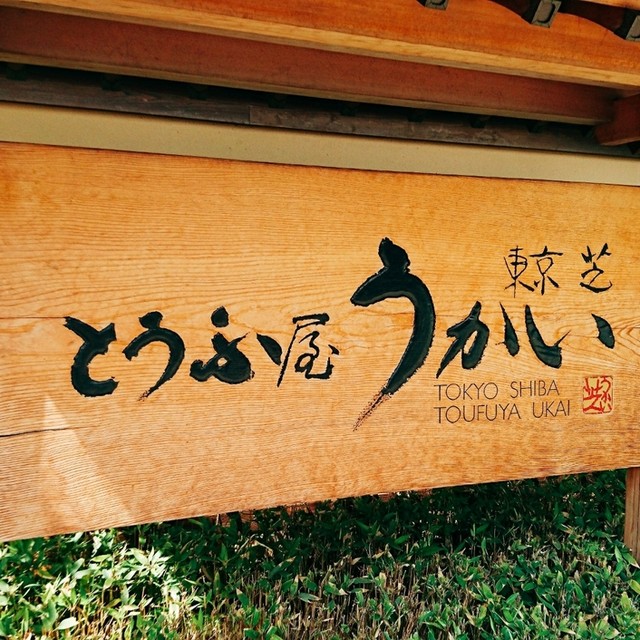 東京 芝
とうふ屋うかい
TOKYO SHIBA
TOUFUYA UKAI